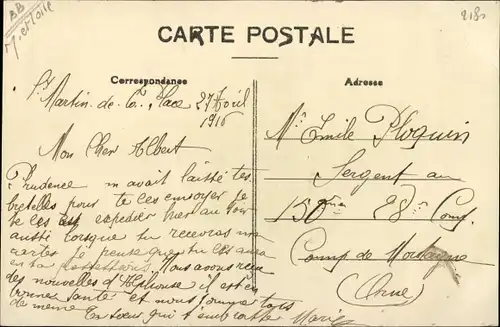 BB
M. et Loire
2180
CARTE POSTALE
Correspondance
Adresse
St Martin de la Place 27 Avril
1916
Mon Cher Albert
Prudence m'avait laissé tes
bretelles pour te les envoyer je
te les expedier hier au soir
aussi lorsque tu recevras ma
cartes je pense que tu les auras
en ta possession. Nous avons recu
des nouvelles d'Alphonse il est en
bonne santé et nous sommes tous
de meme
Ta soeur qui t'embrasse Marie
Mr Emile Ploquin
Sergent au
150 28e Comp.
Camp de Mortagne
(Orne)